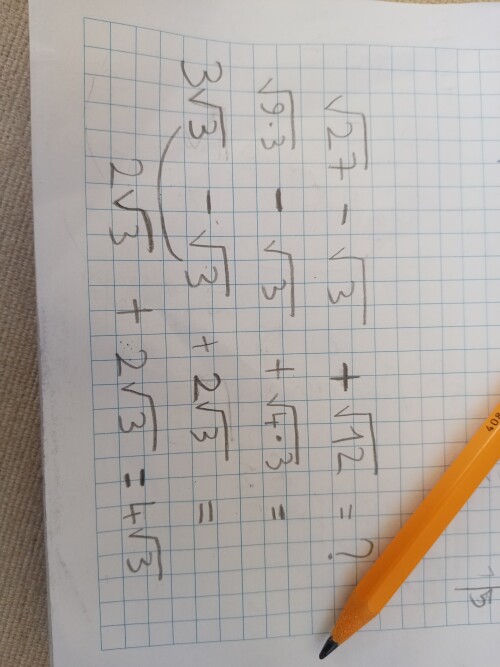 √27 - √3 + √12 = ?
√9·3 - √3 + √4·3 =
3√3 - √3 + 2√3 =
2√3 + 2√3 = 4√3
408